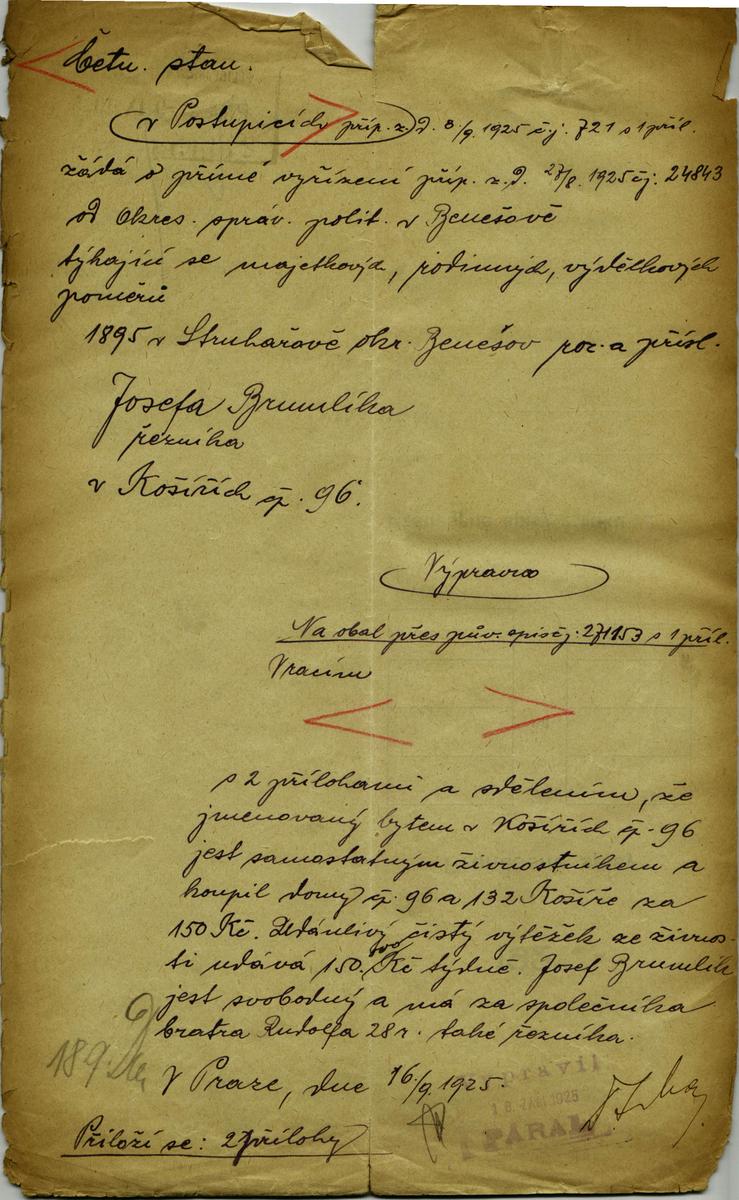 Četn. stan.
v Postupicích příp. z. d. 8/9. 1925 čj. 721 s 1 příl.
žádá o přímé vyřízení příp. z. d. 27/8. 1925 čj. 24843
od Okres. správ. polit. v Benešově
týkající se majetkových, rodinných, výdělkových
poměrů
1895 v Struhařově okr. Benešov roz. a přísl.
Josefa Brumlíka
řezníka
v Košířích čp. 96.
Výprava
Na obal přes pův. opis čj. 271153 s 1 příl.
Vracím
s 2 přílohami a sdělením, že
jmenovaný bytem v Košířích čp. 96
jest samostatným živnostníkem a
koupil domy čp. 96 a 132 Košíře za
150 000 Kč. Udánlivý čistý výtěžek ze živnos-
ti udává 150 Kč týdně. Josef Brumlík
jest svobodný a má za společníka
bratra Rudolfa 28 r. také řezníka.
V Praze, dne 16./9. 1925.
189
Vypravil
16. ZÁŘÍ 1925
PARAL
Přiloží se: 2 přílohy